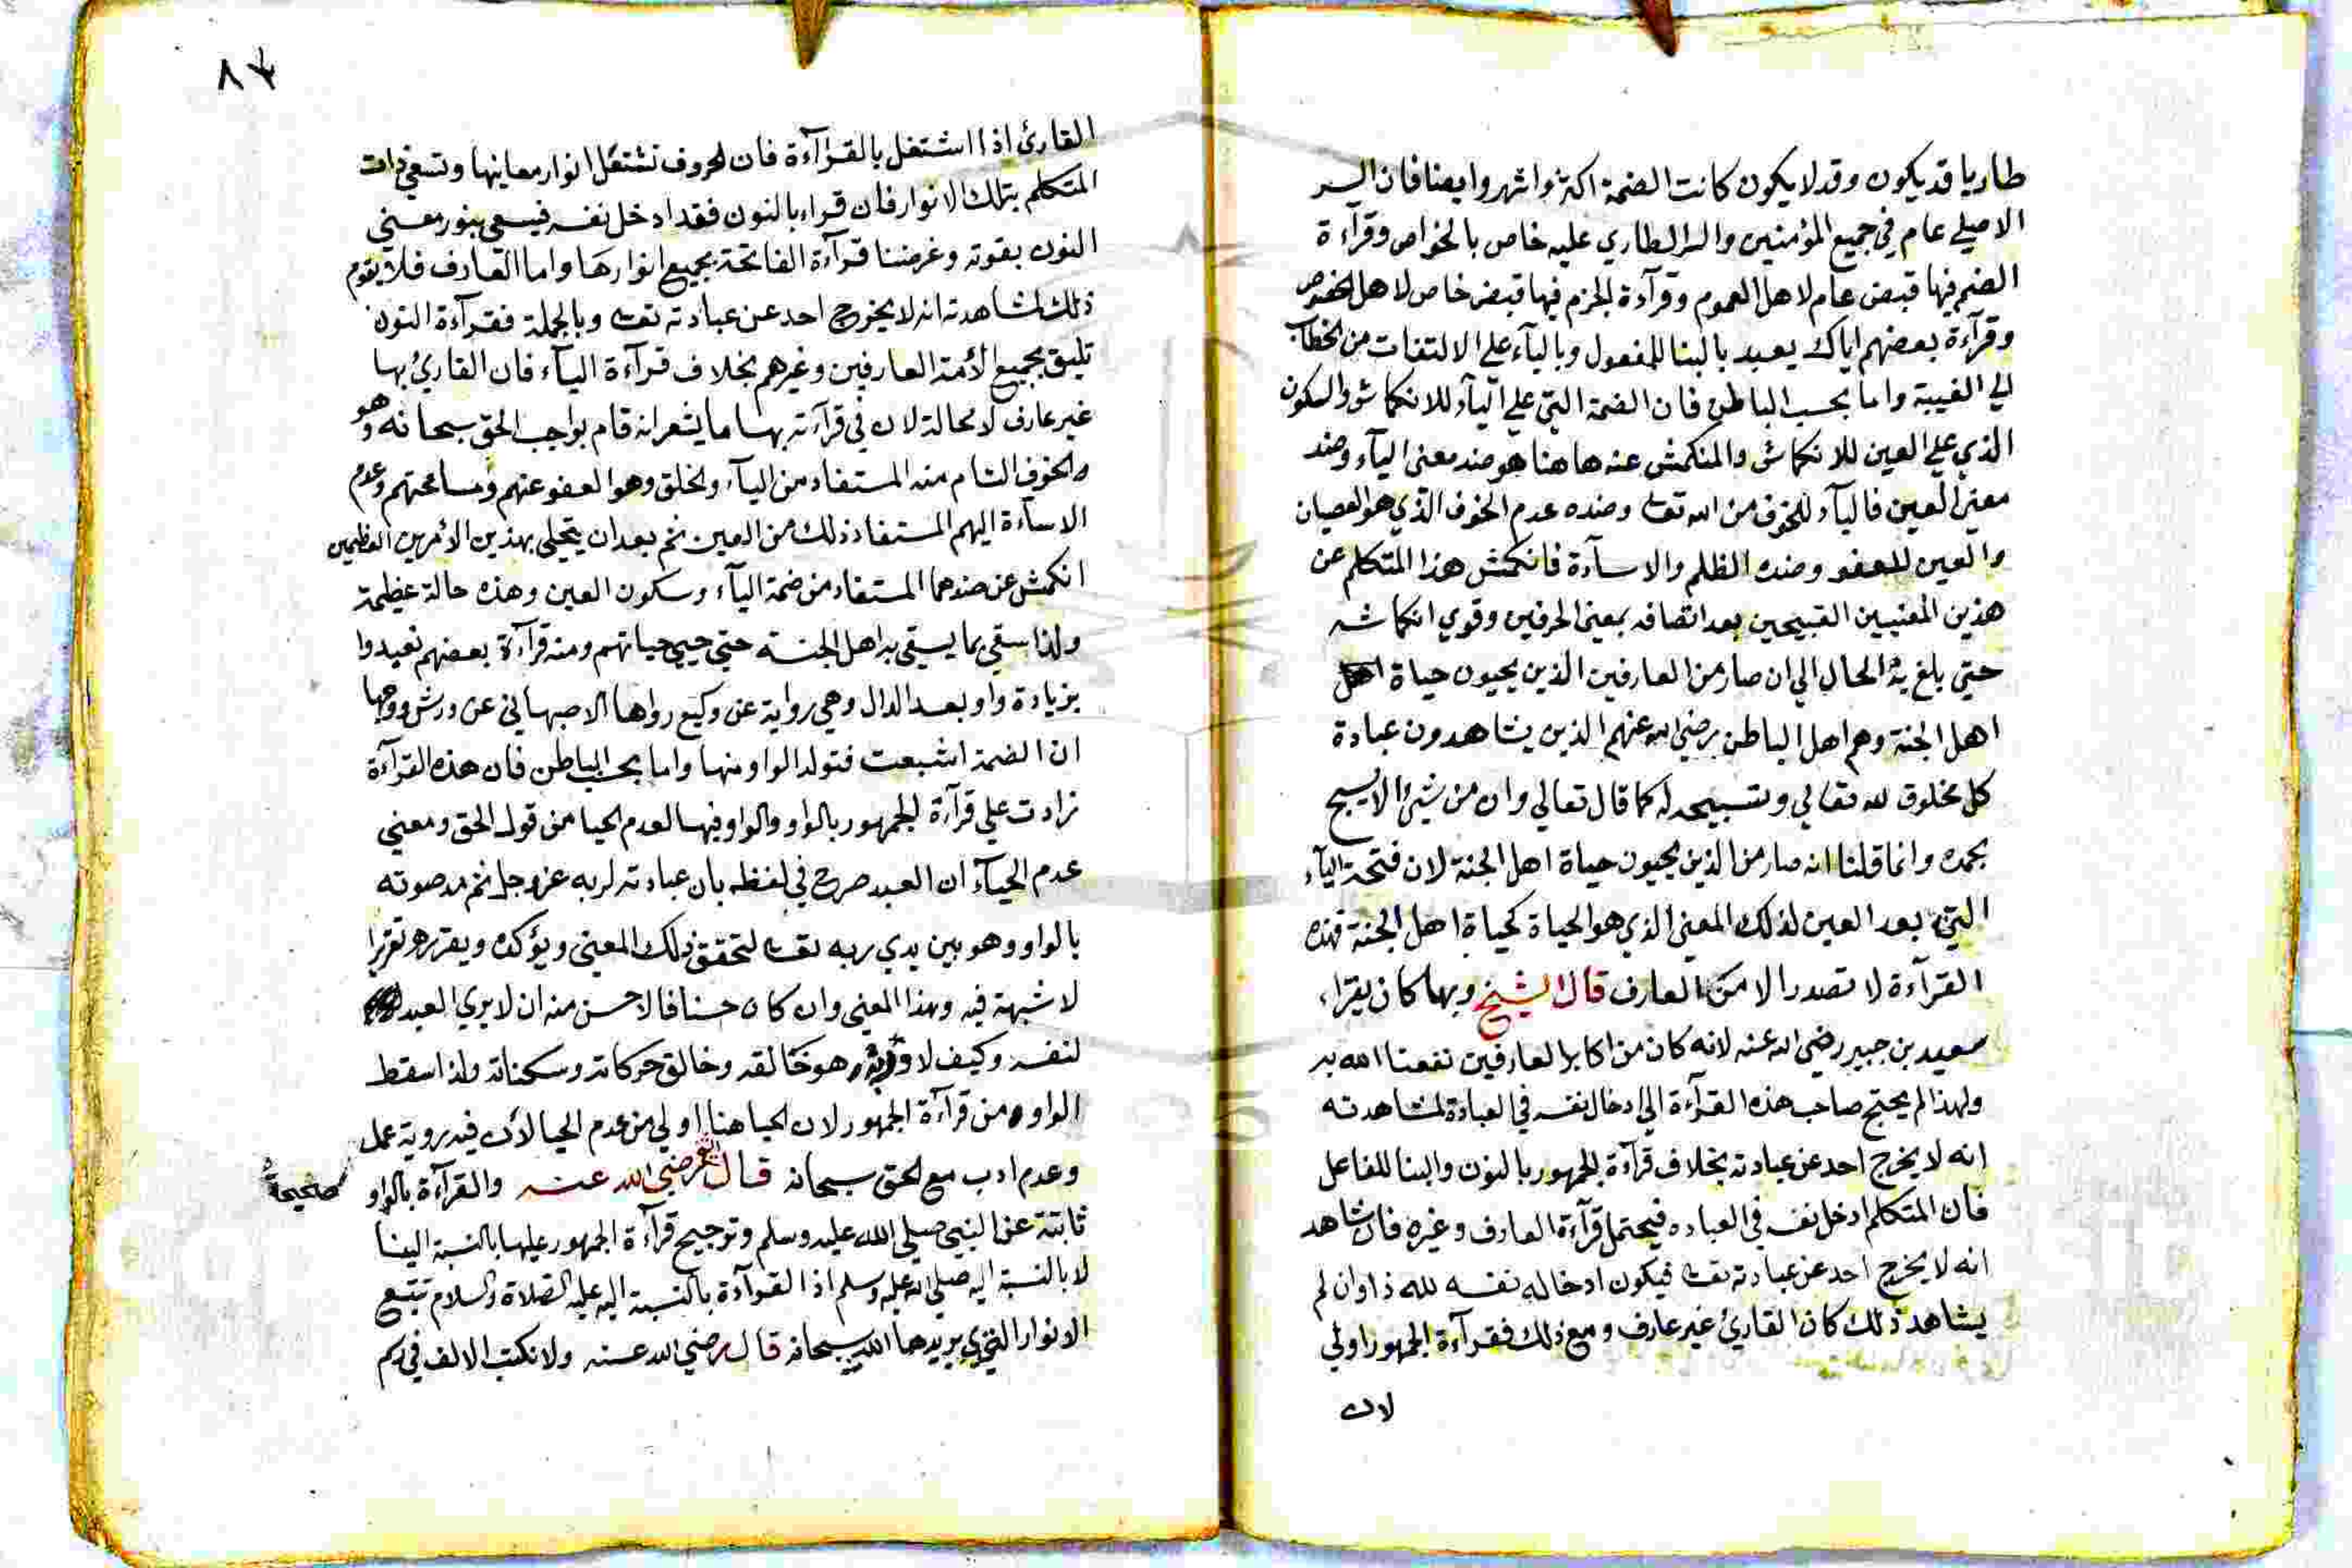 طاريا قد يكون وقد لا يكون كانت الضمة اكثر واشهر وايضا فان السر
الاصلي عام في جميع المؤمنين والسر الطاري عليه خاص بالخواص وقرآءة
الضم فيها قبض عام لاهل العموم وقرآءة الجزم فيها قبض خاص لاهل الخصوص
وقرآءة بعضهم اياك يعبد بالبنا للمفعول وباليآء على الالتفات من الخطاب
الي الغيبة واما بحسب الباطن فان الضمة التي على اليآء للانكماش والسكون
الذي على العين للانكماش والمنكمش عنه هاهنا هو ضد معنى اليآء وضد
معنى العين فاليآء للخوف من الله تعالى وضده عدم الخوف الذي هو العصيان
والعين للعفو وضده الظلم والاسآءة فانكمش هذا المتكلم عن
هذين المعنيين القبيحين بعد اتصافه بمعنى الحرفين وقوي انكماشه
حتي بلغ به الحال الي ان صار من العارفين الذين يحيون حياة
اهل الجنة وهم اهل الباطن رضي الله عنهم الذين يشاهدون عبادة
كل مخلوق لله تعالي وتسبيحه له كما قال تعالي وان من شيئ الا يسبح
بحمده وانما قلنا انه صار من الذين يحيون حياة اهل الجنة لان فتحة اليآء
التي بعد العين لذلك المعنى الذي هو الحياة كحياة اهل الجنة فهذه
القرآءة لا تصدر الا من العارف قال الشيخ وبها كان يقراء
سعيد بن جبير رضي الله عنه لانه كان من اكابر العارفين نفعنا الله به
ولهذا لم يحتج صاحب هذه القرآءة الي ادخال نفسه في العبادة لمشاهدته
انه لا يخرج احد عن عبادته بخلاف قرآءة الجمهور بالنون والبنا للفاعل
فان المتكلم ادخل نفسه في العباده فيحتمل قرآءة العارف وغيره فان شاهد
انه لا يخرج احد عن عبادته تعالى فيكون ادخاله نفسه لله ذا وان لم
يشاهد ذلك كان القارئ غير عارف ومع ذلك فقرآءة الجمهور اولي
لان
القارئ اذا اشتغل بالقرآءة فان الحروف تشتعل انوار معانيها وتسقي ذات
المتكلم بتلك الانوار فان قراء بالنون فقد ادخل نفسه فيسقي بنور معنى
النون بقوته وغرضنا قرآءة الفاتحة بجميع انوارها واما العارف فلا يقوم
ذلك لمشاهدته انه لا يخرج احد عن عبادته تعالى وبالجملة فقرآءة النون
تليق بجميع الأمة العارفين وغيرهم بخلاف قرآءة اليآء فان القارئ بها
غير عارف لا محالة لان في قرآءته بها ما يشعر انه قام بواجب الحق سبحانه وهو
والخوف التام منه المستفاد من اليآء والخلق وهو العفو عنهم ومسامحتهم وعدم
الاسآءة اليهم المستفاد ذلك من العين ثم بعد ان يتحلي بهذين الأمرين العظيمين
انكمش عن ضدهما المستفاد من ضمة اليآء وسكون العين وهذه حالة عظيمة
ولذا سقي بما يسقي به اهل الجنة حتي حيي حياتهم ومنه قرآءة بعضهم نعبدوا
بزيادة واو بعد الدال وهي رواية عن وكيع رواها الاصبهاني عن ورش ووجهها
ان الضمة اشبعت فتولد الواو منها واما بحسب الباطن فان هذه القرآءة
زادت علي قرآءة الجمهور بالواو والواو فيها لعدم الحيا من قول الحق ومعني
عدم الحيآء ان العبد صرح في لفظه بان عبادته لربه عز وجل ثم مد صوته
بالواو وهو بين يدي ربه تعالى لتحقق ذلك المعنى ويؤكده ويقرره تقريرا
لا شبهة فيه وهذا المعنى وان كان حسنا فالاحسن منه ان لا يري العبد
لنفسه وكيف لا هو خالقه وخالق حركاته وسكناته ولذا سقط
الواو من قرآءة الجمهور لان الحيا هنا اولي من عدم الحيا لأن فيه روية عمل
وعدم ادب مع الحق سبحانه قال رضي الله عنه والقرآءة بالواو صحيحة
ثابتة عن النبي صلي الله عليه وسلم وترجيح قرآءة الجمهور عليها بالنسبة الينا
لا بالنسبة اليه صلي الله عليه وسلم اذ القرآءة بالنسبة اليه عليه الصلاة والسلام تتبع
الانوار التي يريدها الله سبحانه قال رضي الله عنه ولا نكتب الالف في